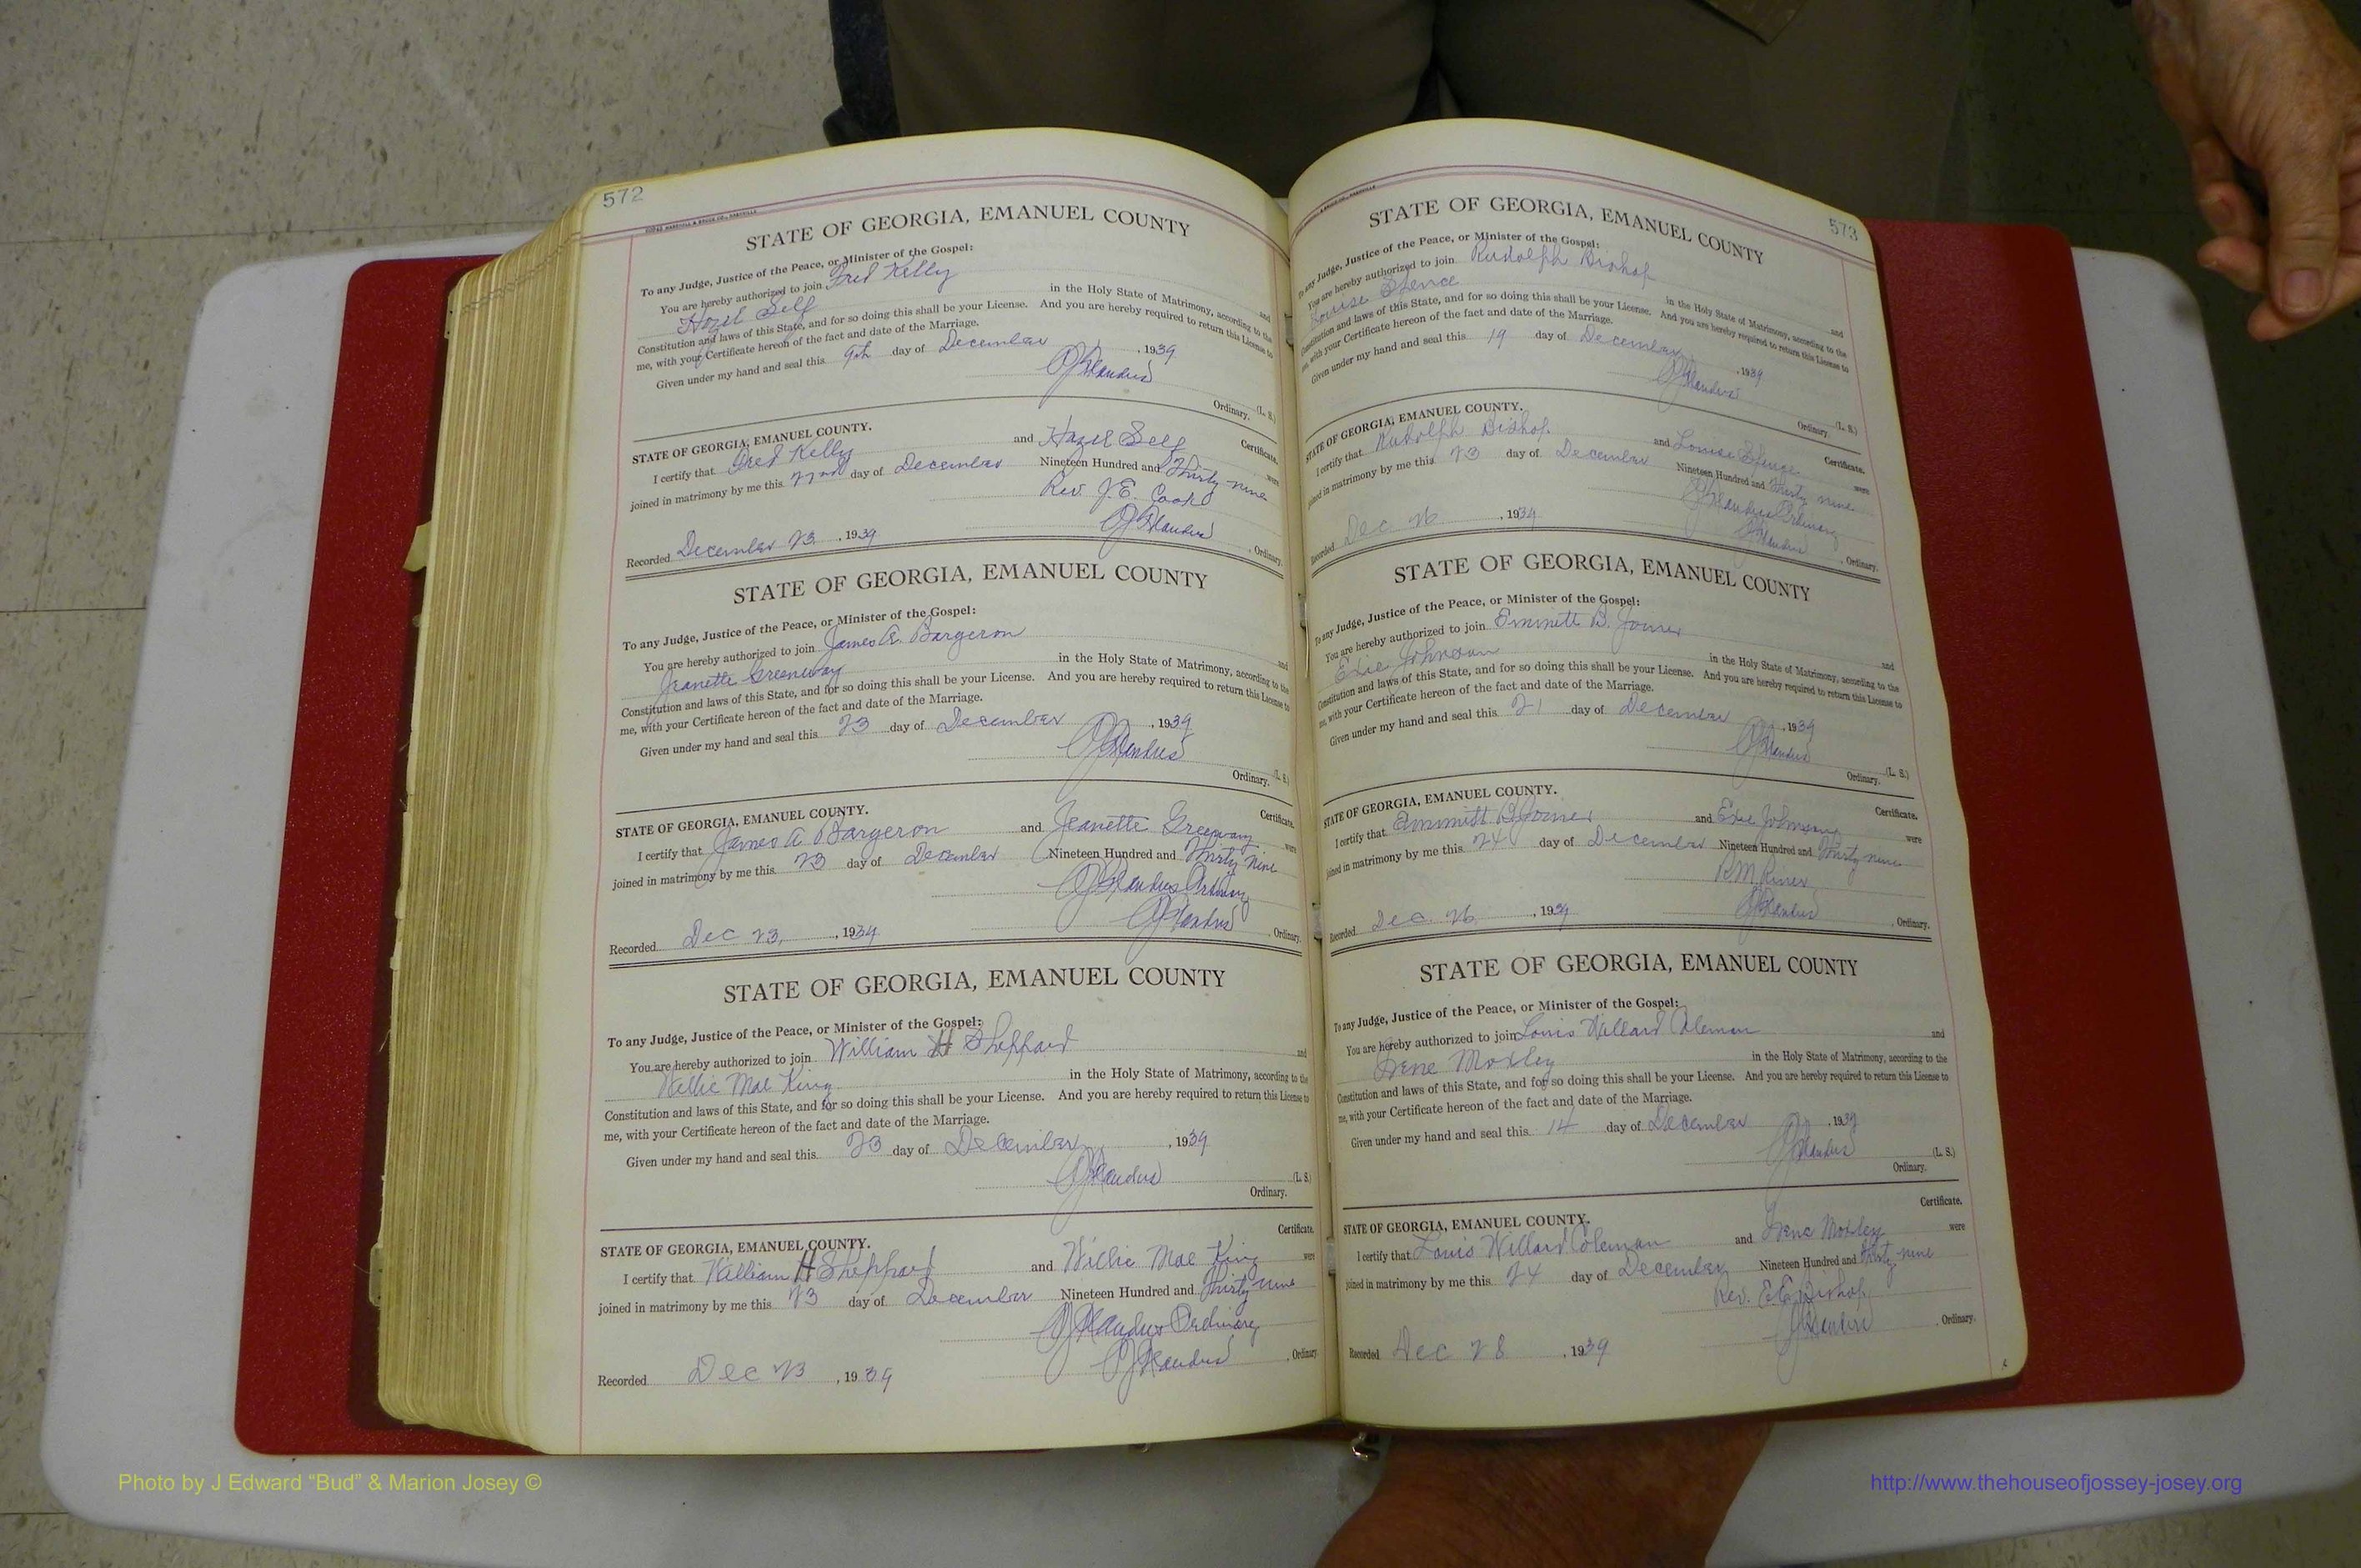 572
STATE OF GEORGIA, EMANUEL COUNTY
To any Judge, Justice of the Peace, or Minister of the Gospel:
You are hereby authorized to join Fred Kelly and
Hazel Self in the Holy State of Matrimony, according to the
Constitution and laws of this State, and for so doing this shall be your License. And you are hereby required to return this License to
me, with your Certificate hereon of the fact and date of the Marriage.
Given under my hand and seal this 9th day of December, 1939
(L. S.)
Ordinary.
Certificate.
STATE OF GEORGIA, EMANUEL COUNTY.
I certify that Fred Kelly and Hazel Self were
joined in matrimony by me this 22nd day of December Nineteen Hundred and Thirty nine
Rev. J. E. Cook
Recorded December 23, 1939 , Ordinary.
STATE OF GEORGIA, EMANUEL COUNTY
To any Judge, Justice of the Peace, or Minister of the Gospel:
You are hereby authorized to join James A. Bargeron and
Jeanette Greenway in the Holy State of Matrimony, according to the
Constitution and laws of this State, and for so doing this shall be your License. And you are hereby required to return this License to
me, with your Certificate hereon of the fact and date of the Marriage.
Given under my hand and seal this 23 day of December, 1939
(L. S.)
Ordinary.
Certificate.
STATE OF GEORGIA, EMANUEL COUNTY.
I certify that James A Bargeron and Jeanette Greenway were
joined in matrimony by me this 23 day of December Nineteen Hundred and Thirty nine
Ordinary
Recorded Dec 23, , 1939 , Ordinary.
STATE OF GEORGIA, EMANUEL COUNTY
To any Judge, Justice of the Peace, or Minister of the Gospel:
You are hereby authorized to join William H Sheppard and
Willie Mae King in the Holy State of Matrimony, according to the
Constitution and laws of this State, and for so doing this shall be your License. And you are hereby required to return this License to
me, with your Certificate hereon of the fact and date of the Marriage.
Given under my hand and seal this 23 day of December, 1939
(L. S.)
Ordinary.
Certificate.
STATE OF GEORGIA, EMANUEL COUNTY.
I certify that William H Sheppard and Willie Mae King were
joined in matrimony by me this 23 day of December Nineteen Hundred and Thirty nine
Ordinary
Recorded Dec 23, 1939 , Ordinary.
573
STATE OF GEORGIA, EMANUEL COUNTY
To any Judge, Justice of the Peace, or Minister of the Gospel:
You are hereby authorized to join Rudolph Bishop and
Louise Spence in the Holy State of Matrimony, according to the
Constitution and laws of this State, and for so doing this shall be your License. And you are hereby required to return this License to
me, with your Certificate hereon of the fact and date of the Marriage.
Given under my hand and seal this 19 day of December, 1939
(L. S.)
Ordinary.
Certificate.
STATE OF GEORGIA, EMANUEL COUNTY.
I certify that Rudolph Bishop and Louise Spence were
joined in matrimony by me this 23 day of December Nineteen Hundred and Thirty nine
Ordinary
Recorded Dec 26, 1939 , Ordinary.
STATE OF GEORGIA, EMANUEL COUNTY
To any Judge, Justice of the Peace, or Minister of the Gospel:
You are hereby authorized to join Emmett B. Joiner and
Johnson in the Holy State of Matrimony, according to the
Constitution and laws of this State, and for so doing this shall be your License. And you are hereby required to return this License to
me, with your Certificate hereon of the fact and date of the Marriage.
Given under my hand and seal this 21 day of December, 1939
(L. S.)
Ordinary.
Certificate.
STATE OF GEORGIA, EMANUEL COUNTY.
I certify that Emmitt B Joiner and Johnson were
joined in matrimony by me this 24 day of December Nineteen Hundred and Thirty nine
R M Riner
Recorded Dec. 26, 1939 , Ordinary.
STATE OF GEORGIA, EMANUEL COUNTY
To any Judge, Justice of the Peace, or Minister of the Gospel:
You are hereby authorized to join Louis Willard Coleman and
Irene Moxley in the Holy State of Matrimony, according to the
Constitution and laws of this State, and for so doing this shall be your License. And you are hereby required to return this License to
me, with your Certificate hereon of the fact and date of the Marriage.
Given under my hand and seal this 14 day of December, 1939
(L. S.)
Ordinary.
Certificate.
STATE OF GEORGIA, EMANUEL COUNTY.
I certify that Louis Willard Coleman and Irene Moxley were
joined in matrimony by me this 24 day of December Nineteen Hundred and Thirty nine
Rev. E. E. Bishop
Recorded Dec 28, 1939 , Ordinary.
Photo by J Edward “Bud” & Marion Josey ©
http://www.thehouseofjossey-josey.org